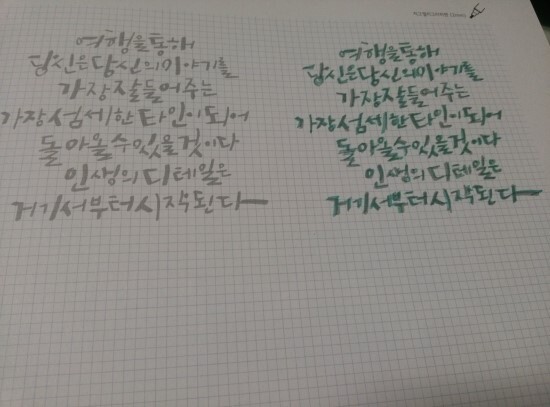 여행을통해
당신은당신의이야기를
가장잘들어주는
가장섬세한타인이되어
돌아올수있을것이다
인생의디테일은
거기서부터시작된다
여행을통해
당신은당신의이야기를
가장잘들어주는
가장섬세한타인이되어
돌아올수있을것이다
인생의디테일은
거기서부터시작된다